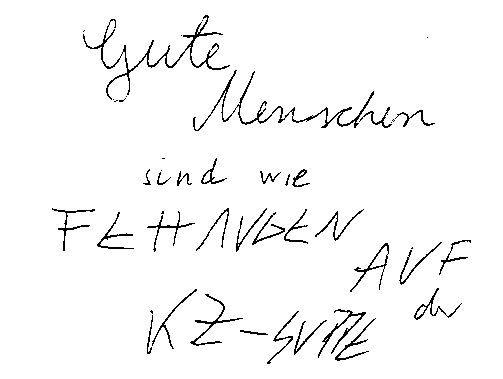 Gute
Menschen
sind wie
FEHAUGEN
AUF
der
KZ-SUPPE